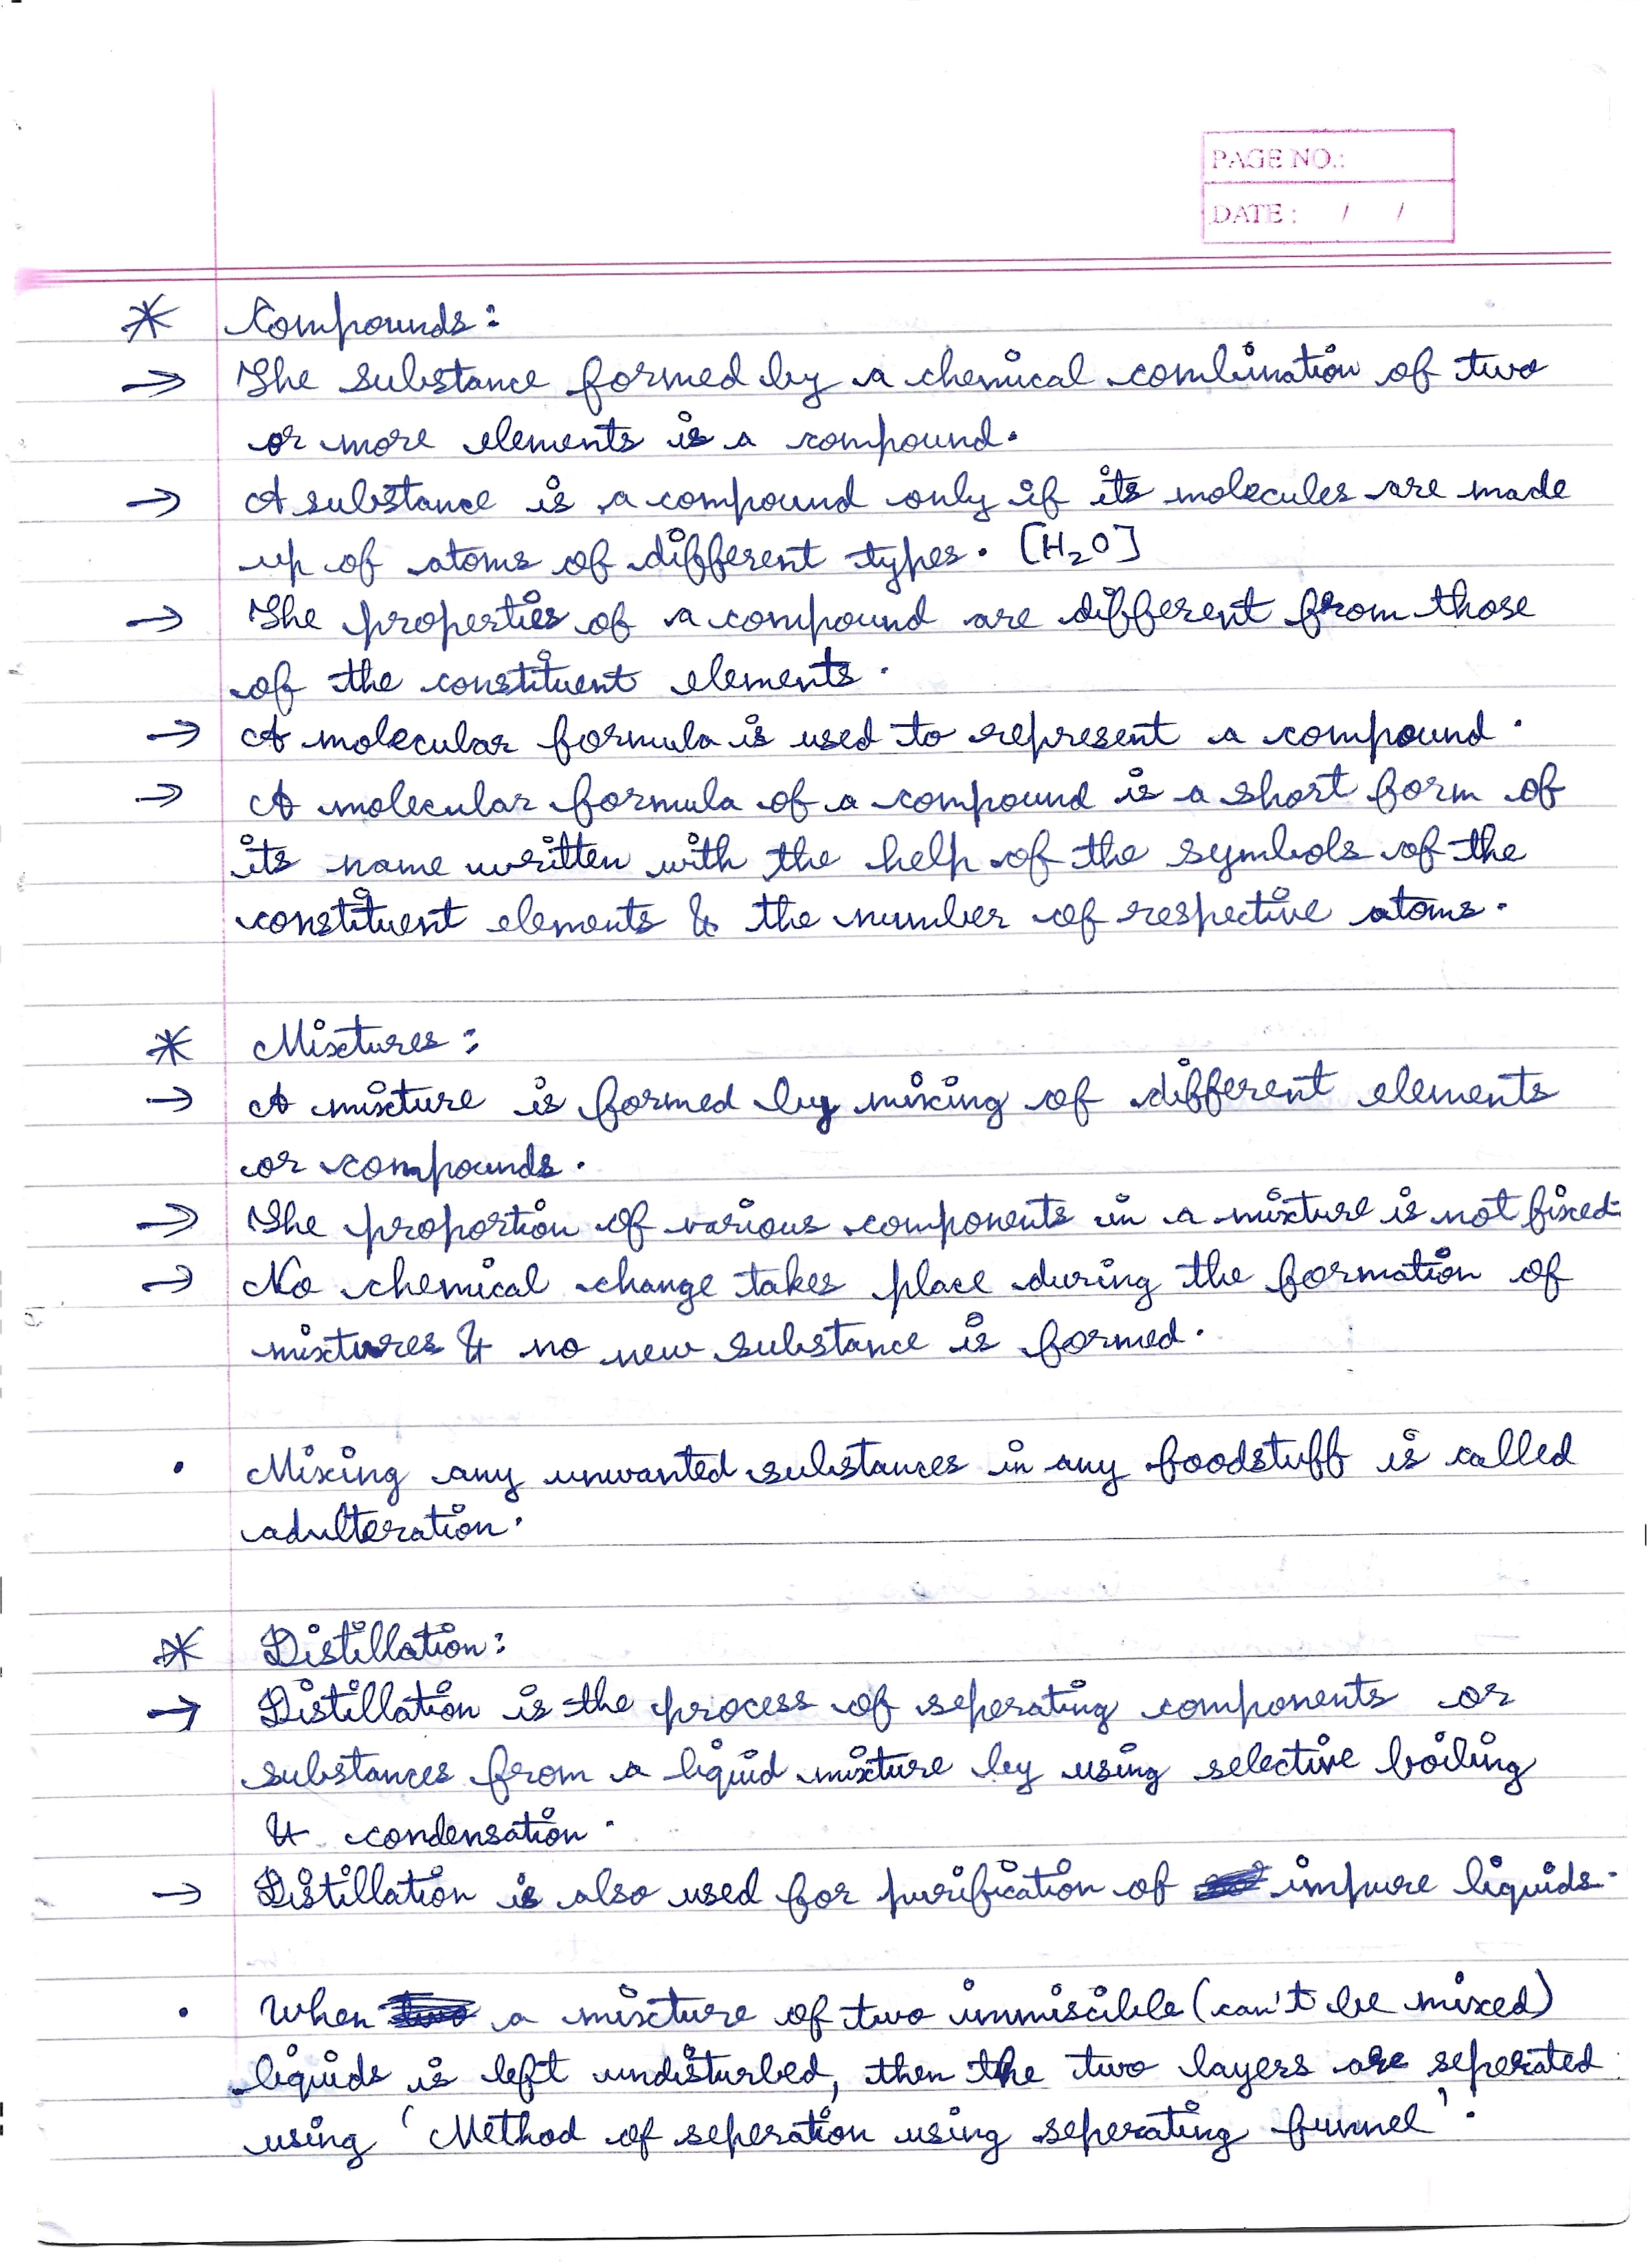 PAGE NO.:
DATE: / /
* Compounds:
→ The substance formed by a chemical combination of two
or more elements is a compound.
→ A substance is a compound only if its molecules are made
up of atoms of different types. [H₂O]
→ The properties of a compound are different from those
of the constituent elements.
→ A molecular formula is used to represent a compound.
→ A molecular formula of a compound is a short form of
its name written with the help of the symbols of the
constituent elements & the number of respective atoms.
* Mixtures:
→ A mixture is formed by mixing of different elements
or compounds.
→ The proportion of various components in a mixture is not fixed.
→ No chemical change takes place during the formation of
mixtures & no new substance is formed.
• Mixing any unwanted substances in any foodstuff is called
adulteration.
* Distillation:
→ Distillation is the process of seperating components or
substances from a liquid mixture by using selective boiling
& condensation.
→ Distillation is also used for purification of impure liquids.
• When a mixture of two immiscible (can't be mixed)
liquids is left undisturbed, then the two layers are seperated
using 'Method of seperation using seperating funnel'.